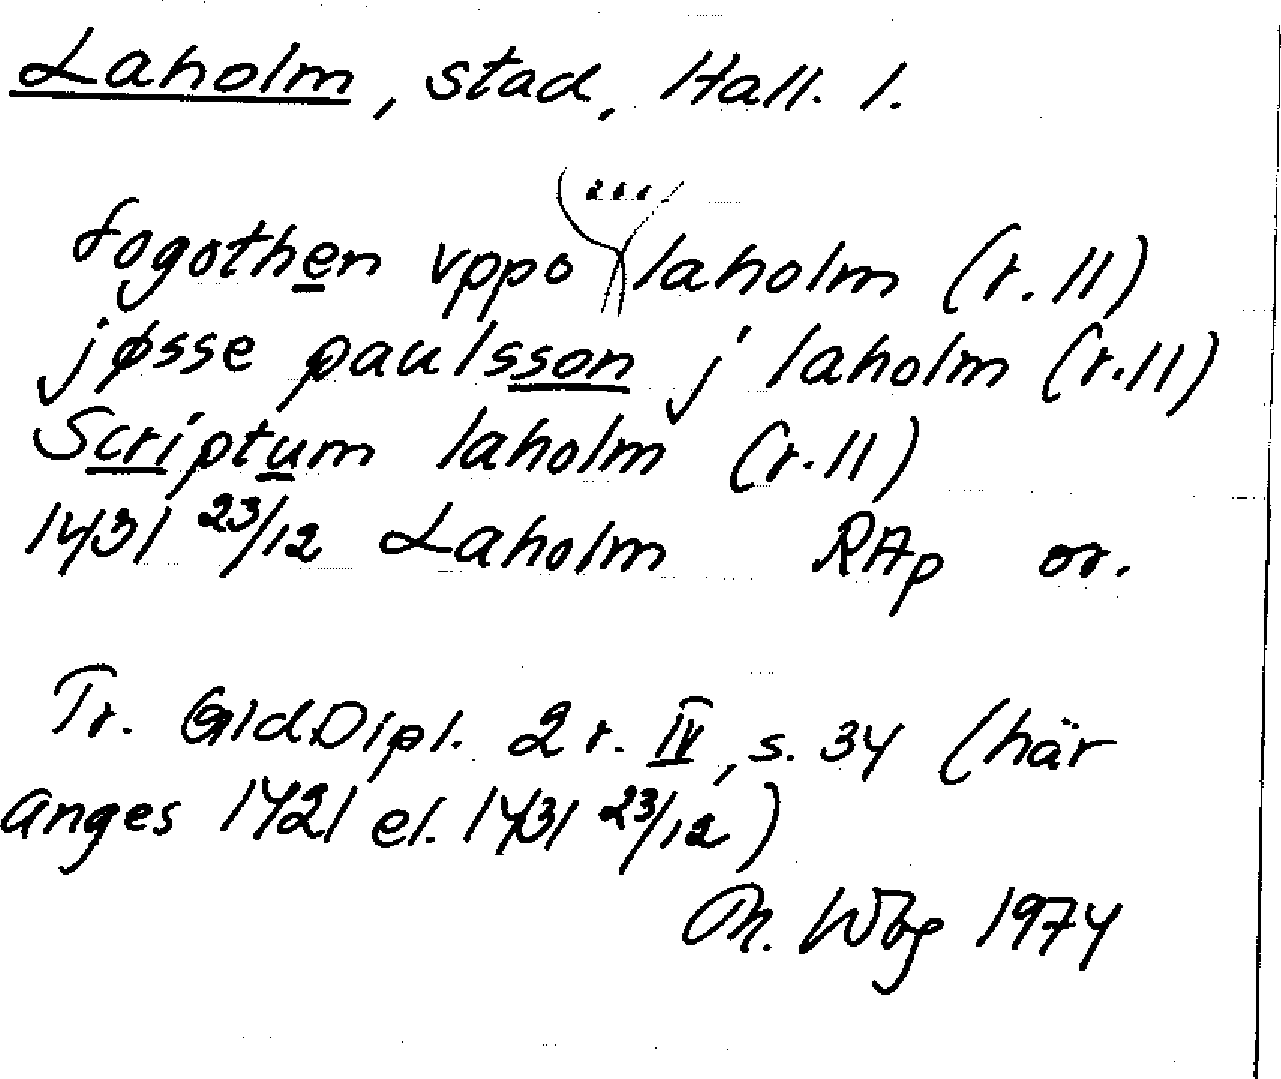 Laholm, stad, Hall. l.
...
fogothen vppo laholm (r. 11)
jøsse paulsson j laholm (r. 11)
Scriptum laholm (r. 11)
1431 23/12 Laholm RAp or.
Tr. GldDipl. 2 r. IV, s. 34 (här
anges 1421 el. 1431 23/12)
Th. Wbg 1974